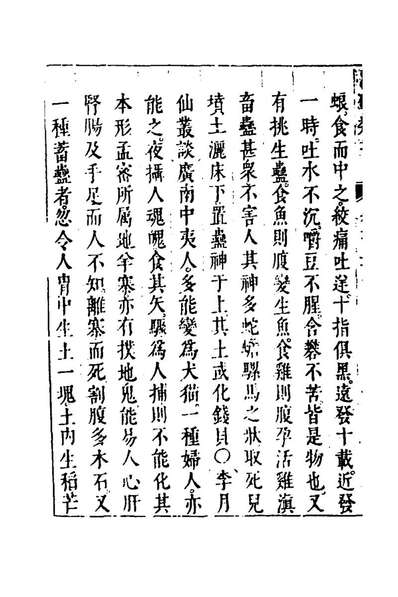 蝦食而中之絞痛吐逆十指俱黑遠發十載近發
一時吐水不沉嚼豆不腥含礬不苦皆是物也又
有挑生蠱食魚則腹變生魚食雞則腹孕活雞滇
畜蠱甚衆不害人其神多蛇蜥騾馬之狀取死兒
墳土灑床下置蠱神于上其土或化錢貝〇李月
仙叢談廣南中夷人多能變為犬猫一種婦人亦
能之夜攝人魂魄食其矢驟為人捕則不能化其
本形孟密所属地羊寨亦有撲地鬼能易人心肝
腎腸及手足而人不知離寨而死割腹多木石又
一種蓄蠱者忽令人胃中生土一塊土内生稻芒